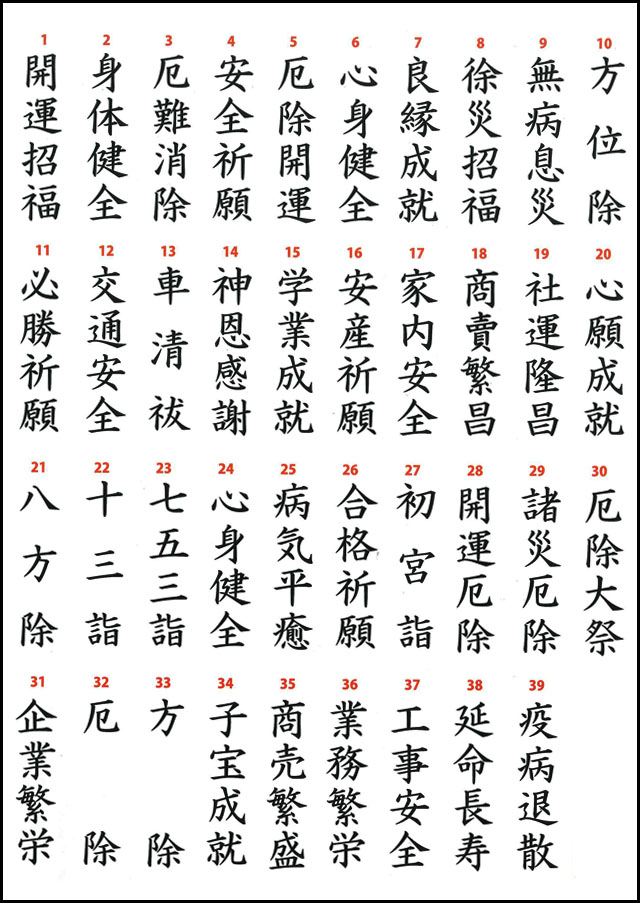 1 開運招福
2 身体健全
3 厄難消除
4 安全祈願
5 厄除開運
6 心身健全
7 良縁成就
8 徐災招福
9 無病息災
10 方位除
11 必勝祈願
12 交通安全
13 車清祓
14 神恩感謝
15 学業成就
16 安産祈願
17 家内安全
18 商賣繁昌
19 社運隆昌
20 心願成就
21 八方除
22 十三詣
23 七五三詣
24 心身健全
25 病気平癒
26 合格祈願
27 初宮詣
28 開運厄除
29 諸災厄除
30 厄除大祭
31 企業繁栄
32 厄除
33 方除
34 子宝成就
35 商売繁盛
36 業務繁栄
37 工事安全
38 延命長寿
39 疫病退散